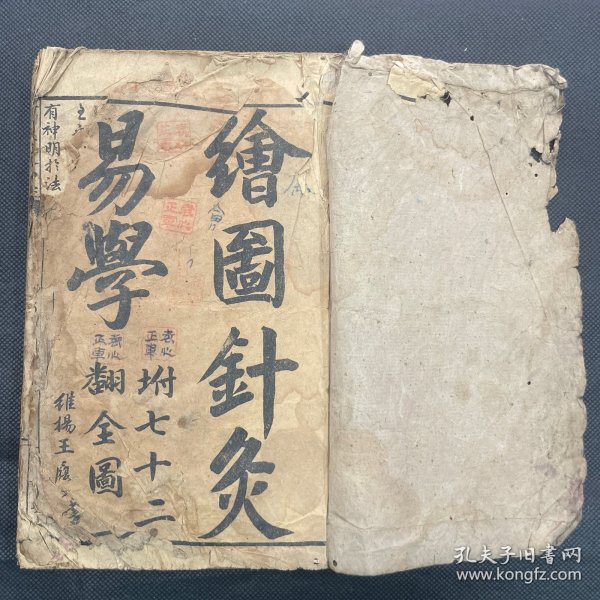 繪圖針灸
易學
坿七十二
翻全圖
維揚王
有神明於法
孔夫子旧书网
www.kongfz.com